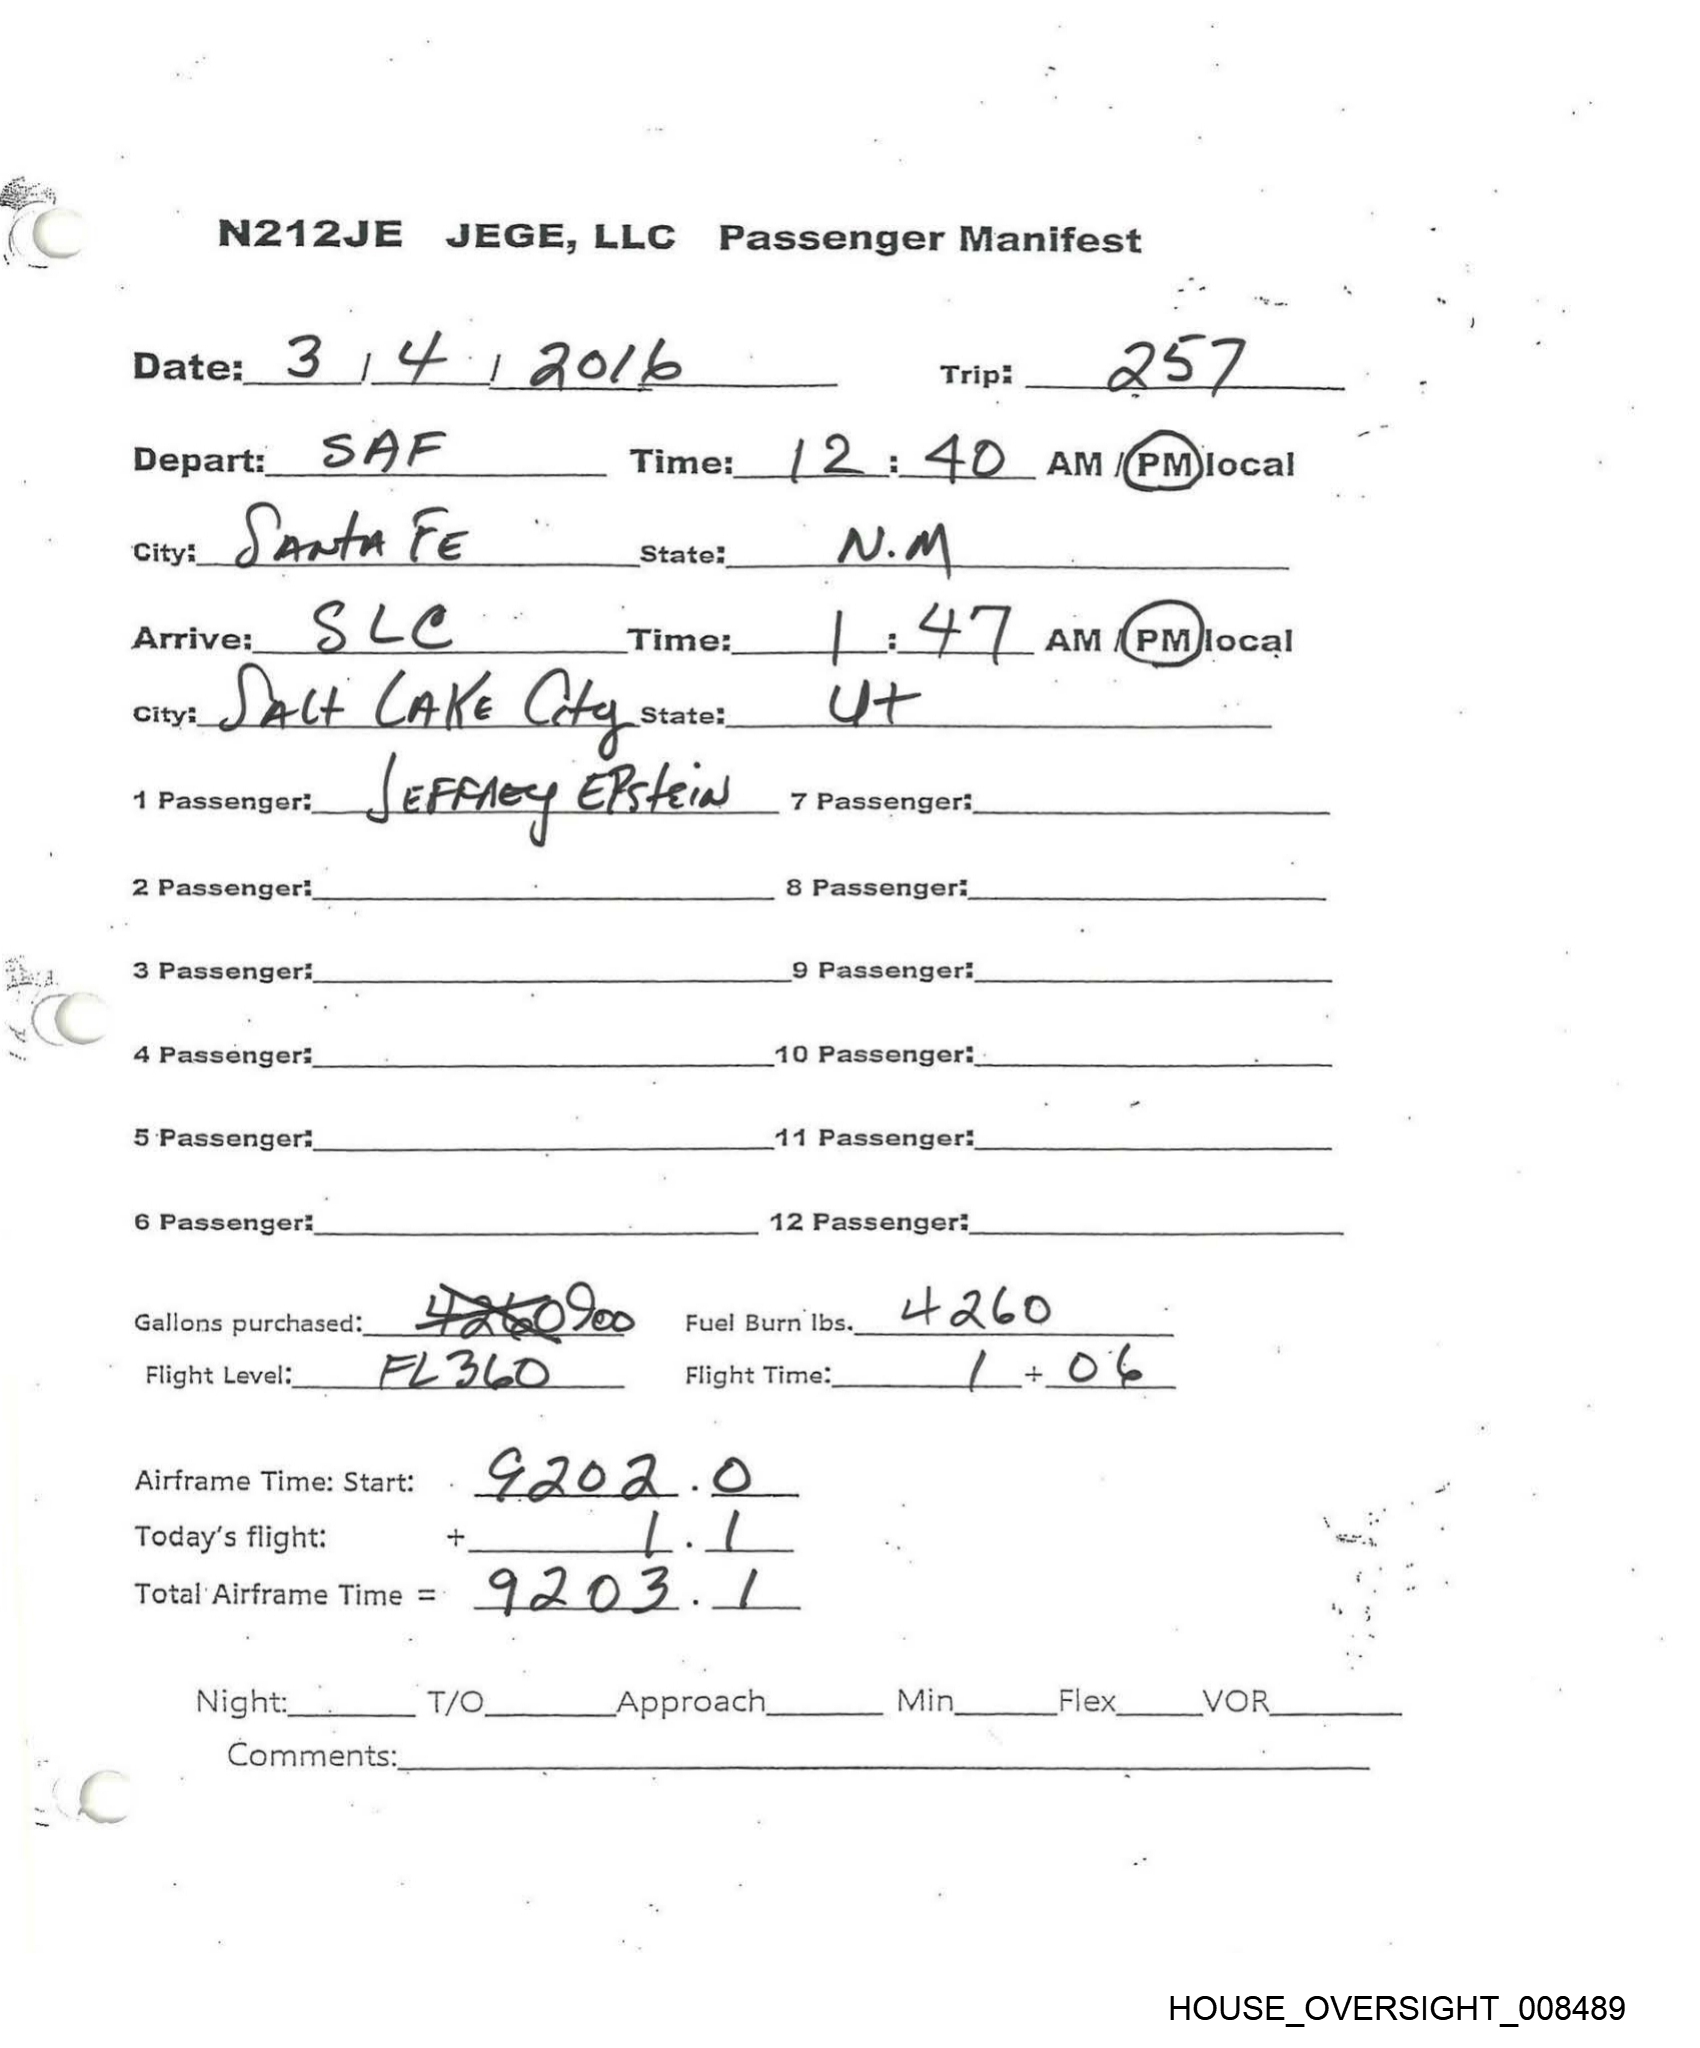 N212JE JEGE, LLC Passenger Manifest
Date: 3 / 4 / 2016 Trip: 257
Depart: SAF Time: 12 : 40 AM / PM local
City: Santa Fe State: N.M
Arrive: SLC Time: 1 : 47 AM / PM local
City: Salt Lake City State: Ut
1 Passenger: Jeffrey Epstein 7 Passenger:
2 Passenger: 8 Passenger:
3 Passenger: 9 Passenger:
4 Passenger: 10 Passenger:
5 Passenger: 11 Passenger:
6 Passenger: 12 Passenger:
Gallons purchased: 4260 900 Fuel Burn lbs. 4260
Flight Level: FL360 Flight Time: 1 + 06
Airframe Time: Start: 9202.0
Today's flight: + 1.1
Total Airframe Time = 9203.1
Night: T/O Approach Min Flex VOR
Comments:
HOUSE_OVERSIGHT_008489